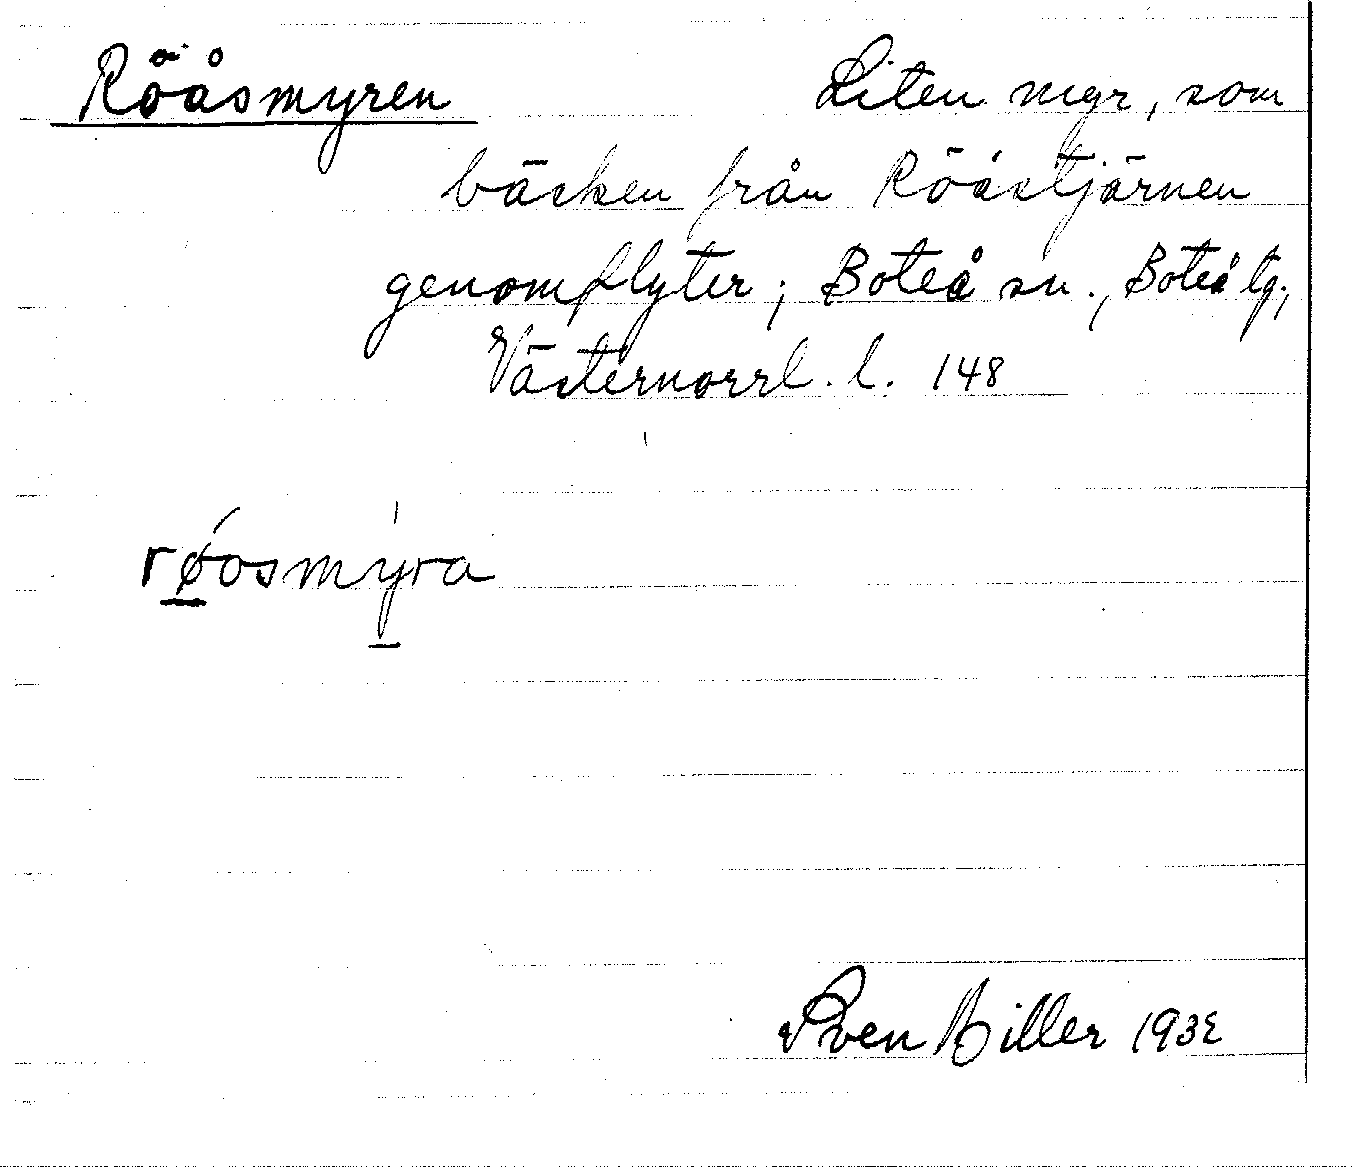 Rööåsmyren Liten myr, som
bäcken från Rööåstjärnen
genomflyter; Boteå sn., Boteå tg.,
Västernorrl. l. 148
røosmyra
Sven Hiller 1932